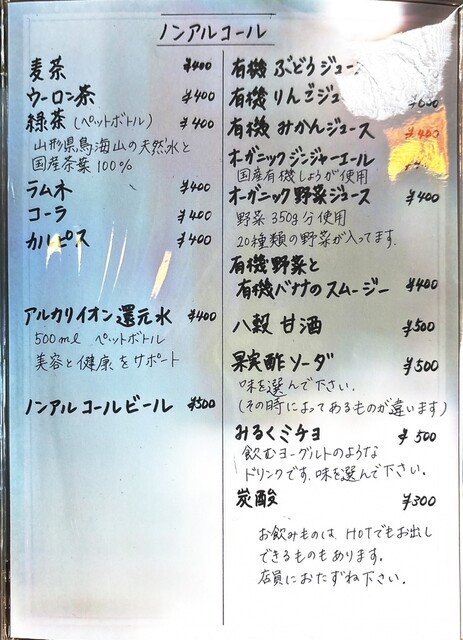 ノンアルコール
麦茶 ¥400
ウーロン茶 ¥400
緑茶(ペットボトル) ¥400
山形県鳥海山の天然水と
国産茶葉100%
ラムネ ¥400
コーラ ¥400
カルピス ¥400
アルカリイオン還元水 ¥400
500ml ペットボトル
美容と健康をサポート
ノンアルコールビール ¥500
有機ぶどうジュー
有機りんごジュー
有機みかんジュース ¥400
オーガニックジンジャーエール
国産有機しょうが使用
オーガニック野菜ジュース ¥400
野菜350g分使用
20種類の野菜が入ってます.
有機野菜と
有機バナナのスムージー ¥400
八穀甘酒 ¥500
果実酢ソーダ ¥500
味を選んで下さい.
(その時によってあるものが違います)
みるくミチョ ¥500
飲むヨーグルトのような
ドリンクです.味を選んで下さい。
炭酸 ¥300
お飲みものは、HOTでもお出し
できるものもあります。
店員におたずね下さい。